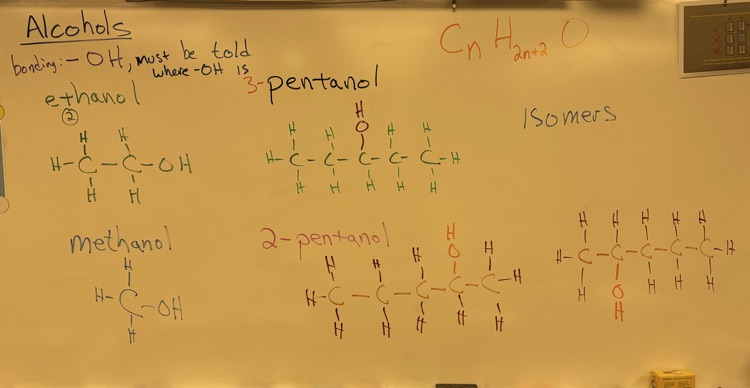 Alcohols
bonding:- -OH, must be told
where -OH is
CnH2n+2O
ethanol
2
H H
H-C-C-OH
H H
3-pentanol
H
H H O H H
H-C-C-C-C-C-H
H H H H H
Isomers
methanol
H
H-C-OH
H
2-pentanol
H
H H H O H
H-C-C-C-C-C-H
H H H H H
H H H H H
H-C-C-C-C-C-H
H O H H H
H